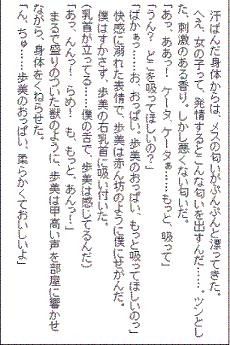 汗ばんだ身体からは、メスの匂いがぷんぷんと漂ってきた。
へぇ、女の子って、発情するとこんな匂いを出すんだ……。ツンとし
た、刺激のある香り。しかし悪くない匂いだ。
「あっ、ああっ！ ケータ、ケータぁ……もっと、吸って」
「うんっ？ どこを吸ってほしいの？」
「ばかぁっ……お、おっぱい、歩美のおっぱい、もっと吸ってほしいのっ」
快感に溺れた表情で、歩美は赤ん坊のように僕にせがんだ。
僕はすかさず、歩美の右乳首に吸い付いた。
（乳首が立ってる……僕の舌で、歩美は感じてるんだ）
「あっ、んんっ！ らめっ！ も、もっと、あんっ！」
まるで盛りのついた獣のように、歩美は甲高い声を部屋に響かせ
ながら、身体をくねらせた。
「ん、ちゅ……歩美のおっぱい、柔らかくておいしいよ」